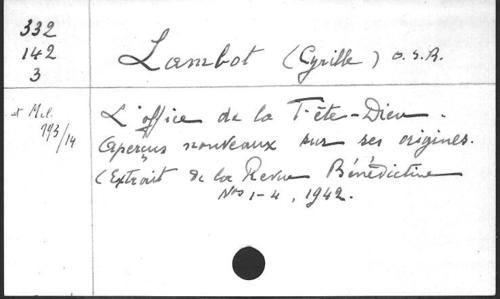 332
142
3
Lambot (Cyrille) O. S. B.
et Mel.
193/14
L'office de la Fête-Dieu.
Aperçus nouveaux sur ses origines.
(Extrait de la Revue Bénédictine
Nos 1-4, 1942.